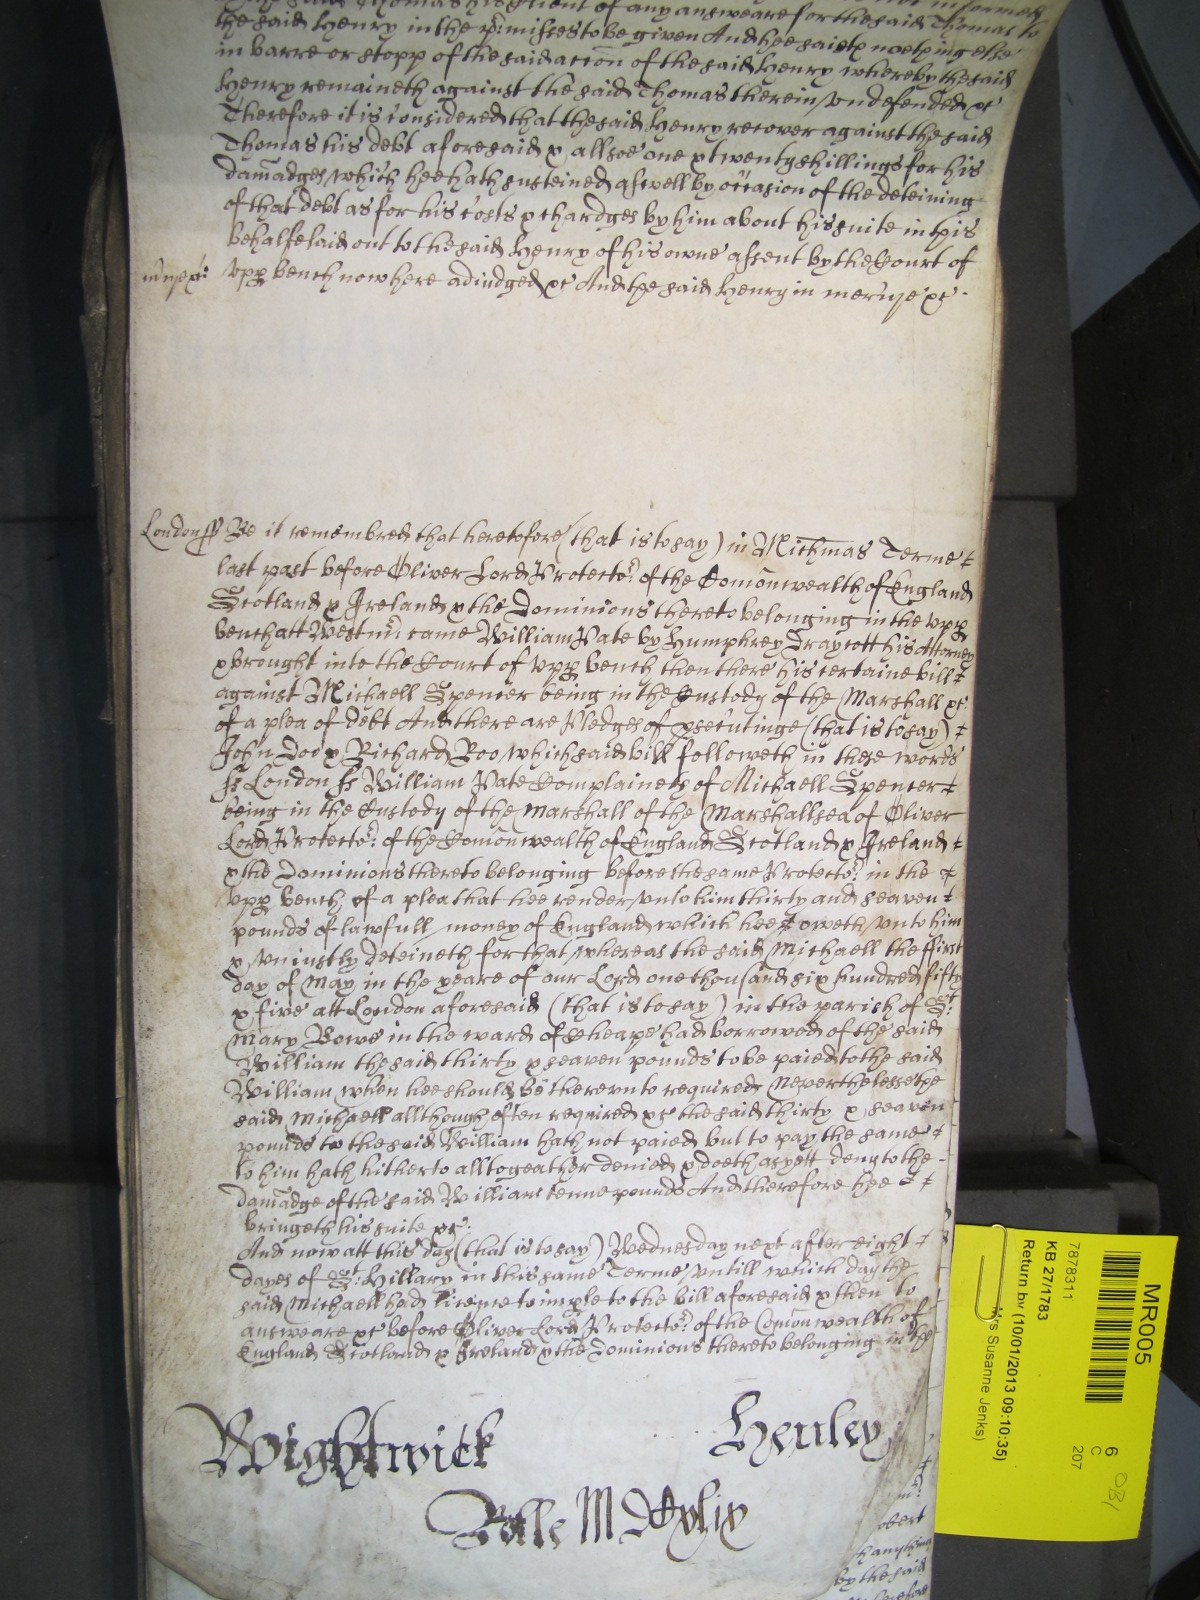 the said Henry in the p:misses to be given And hee saieth nothing else
in barre or stopp of the said accon of the said Henry whereby the said
Henry remaineth against the said Thomas therein undefended &c
Therefore it is considered that the said Henry recover against the said
Thomas his debt aforesaid & allsoe one & twenty shillings for his
damadges which hee hath susteined aswell by occasion of the deteining
of that debt as for his costs & chardges by him about his suite in this
behalfe laid out to the said Henry of his owne assent by the Court of
Upp bench now here adiudged &c And the said Henry in mercye &c
London ss Be it remembred that heretofore (that is to say) in Michmas Terme
last past before Oliver Lord Protector of the Comonwealth of England
Scotland & Ireland & the Dominions thereto belonging in the upp
bench att Westm came William Pate by Humphrey Draycott his Attorney
& brought into the Court of upp bench then there his certaine bill
against Michaell Spencer being in the Custody of the Marshall &c
of a plea of debt And there are Pledges of psecutinge (that is to say)
John Doo & Richard Roo which said bill followeth in these words
ss London ss William Pate Complaineth of Michaell Spencer
being in the Custody of the Marshall of the Marshallsea of Oliver
Lord Protector of the Comonwealth of England Scotland & Ireland
& the Dominions thereto belonging before the same Protector in the
upp bench of a plea that hee render unto him thirty and seaven
pounds of lawfull money of England which hee oweth unto him
& uniustly deteineth for that whereas the said Michaell the ffirst
day of May in the yeare of our Lord one thousand six hundred fifty
& five att London aforesaid (that is to say) in the parish of St
Mary Bowe in the ward of Cheape had borrowed of the said
William the said thirty & seaven pounds to be paied to the said
William when hee should be thereunto required Neverthelesse the
said Michaell allthough often required &c the said thirty & seaven
pounds to the said William hath not paied but to pay the same
to him hath hitherto alltogeather denied & doeth as yett deny to the
damadge of the said William tenne pounds And therefore hee
bringeth his suite &c
And now att this day (that is to say) Wednesday next after eight
dayes of St Hillary in this same Terme untill which day the
said Michaell had licence to imple to the bill aforesaid & then to
answeare &c before Oliver Lord Protector of the Comonwealth of
England Scotland & Ireland & the Dominions thereto belonging in the
Wightwick Henley
Rolle M
obert
by the said
MR005
7878311
KB 27/1783
Return by (10/01/2013 09:10:35)
Mrs Susanne Jenks)
6
C
207